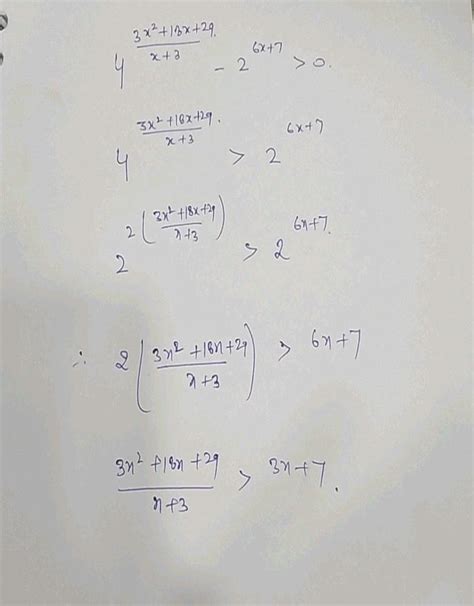 4^{\frac{3x^2+18x+29}{x+3}} - 2^{6x+7} > 0.
4^{\frac{3x^2+18x+29}{x+3}} > 2^{6x+7}
2^{2\left(\frac{3x^2+18x+29}{x+3}\right)} > 2^{6x+7}.
∴ 2\left(\frac{3x^2+18x+29}{x+3}\right) > 6x+7
\frac{3x^2+18x+29}{x+3} > 3x+7.